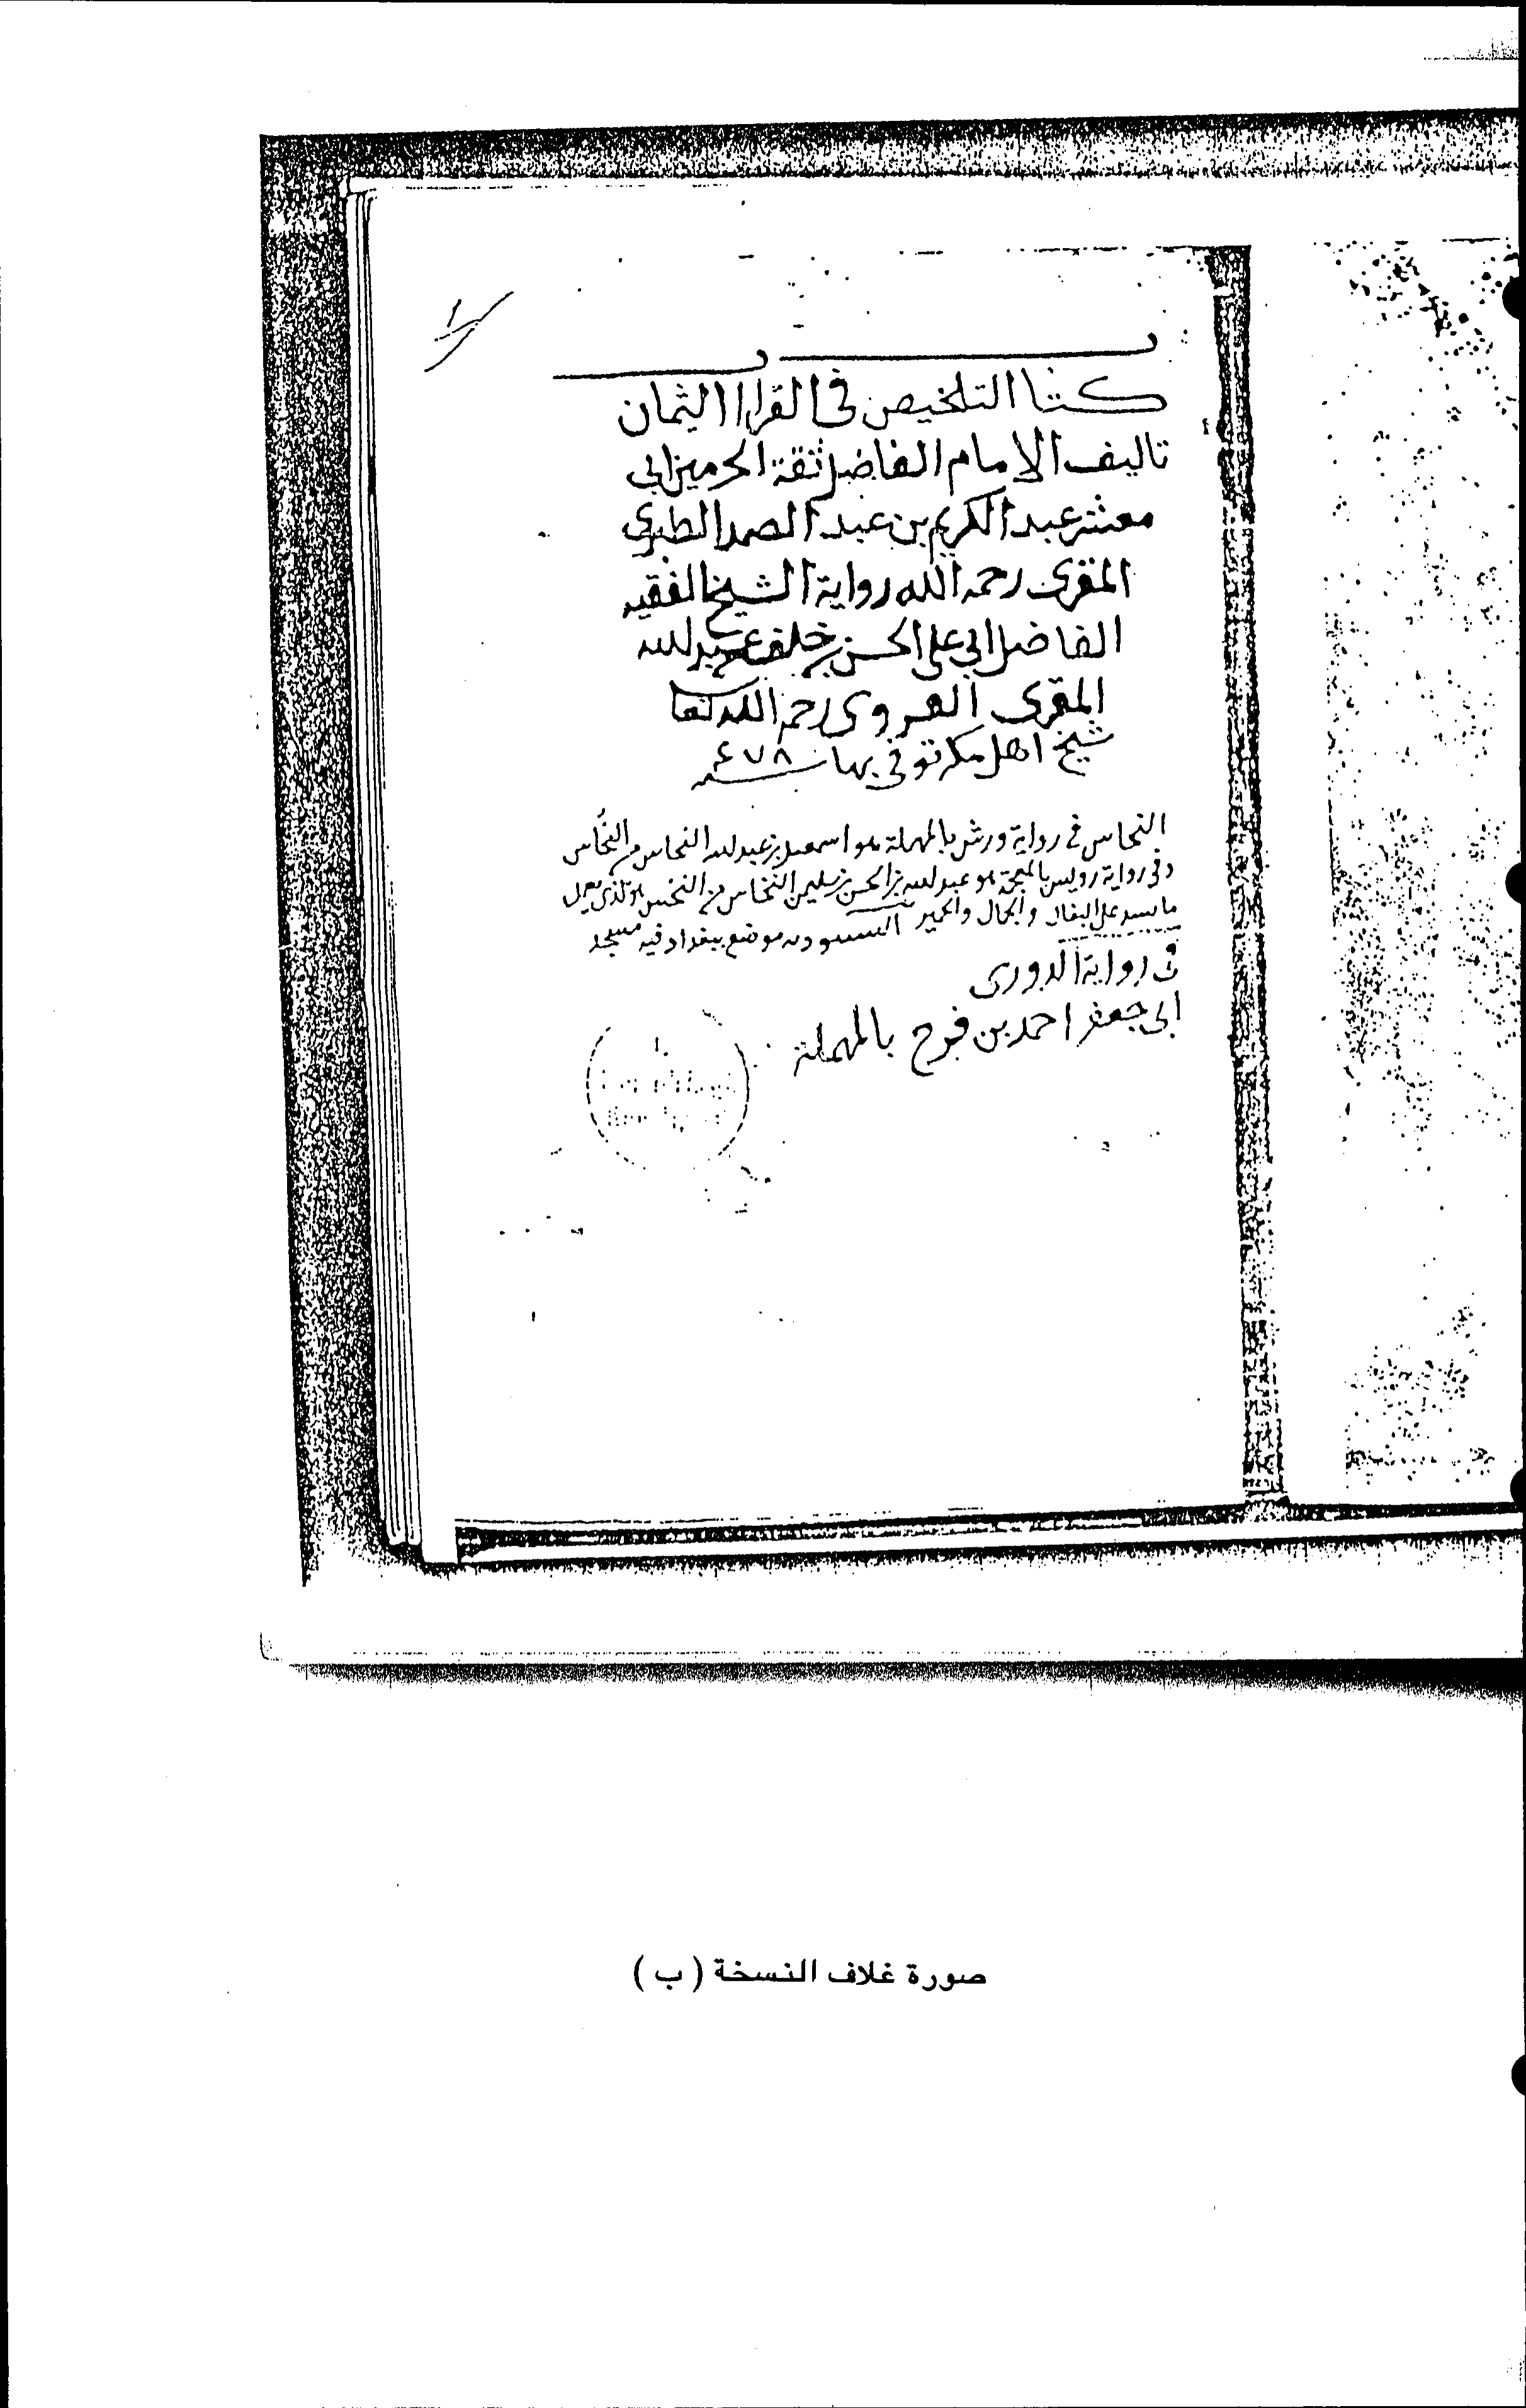 ١
كتا التلخيص في القراا الثمان
تاليف الامام الفاضل ثقة الحرمين ابي
معشر عبد الكريم بن عبد الصمد الطبري
المقرى رحمه الله رواية الشيخ الفقيه
الفاضل ابي على الحسن بن خلف عبد لله
المقرى رحمه الله تعا
شيخ اهل مكه توفى بها سنه ٤٧٨
النحاس في رواية ورش بالمهملة هو اسمعيل بن عبد لله النحاس من النحاس
وفي رواية رويس بالمعجمة هو عبد لله بن الحسن بن سليمن النخاس من النخس هو الذى يعمل
ما يسد على البغال والجمال والحمير موضع ببغداد فيه مسجد
في رواية الدورى
ابي جعفر احمد بن فرح بالمهملة
صورة غلاف النسخة ( ب )